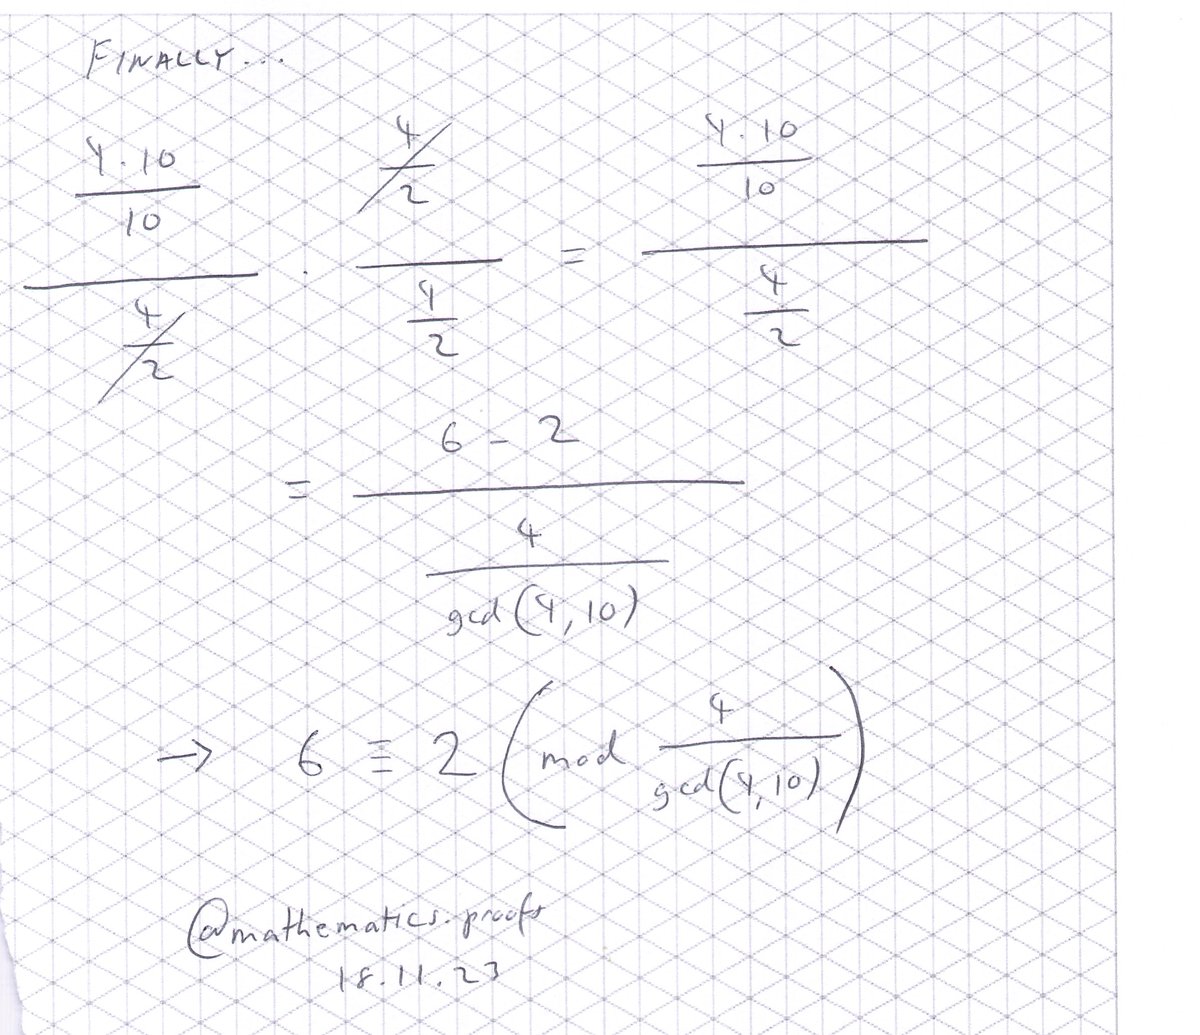 FINALLY...
4·10
10
4
2
·
4
2
4
2
=
4·10
10
4
2
=
6 - 2
4
gcd(4,10)
→ 6 ≡ 2 (mod 4
gcd(4,10))
@mathematics.proofs
18.11.23